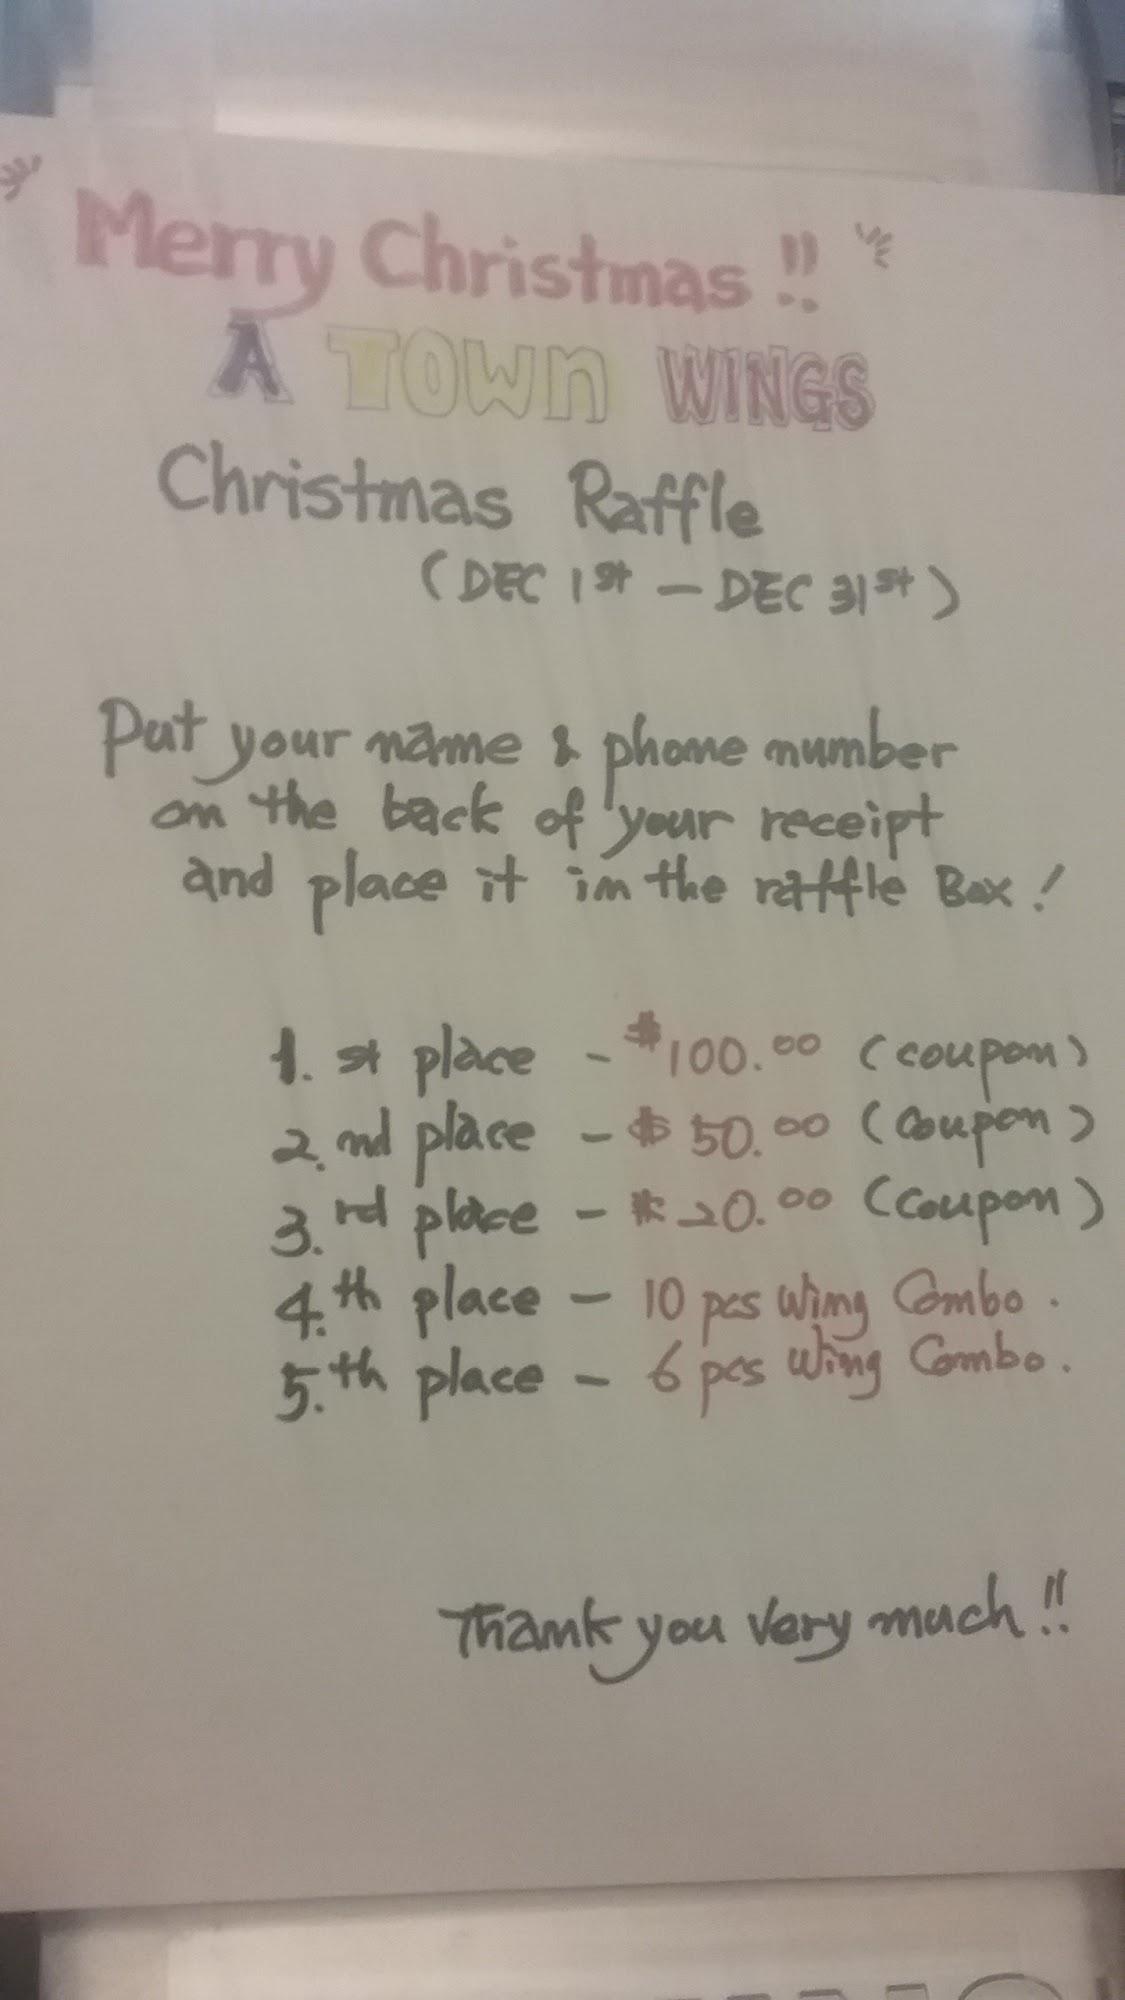 Merry Christmas!!
A TOWN WINGS
Christmas Raffle
(DEC 1st - DEC 31st)
Put your name & phone number
on the back of your receipt
and place it in the raffle Box!
1. st place - $100.00 (coupon)
2. nd place - $50.00 (coupon)
3. rd place - $20.00 (coupon)
4. th place - 10 pcs Wing Combo.
5. th place - 6 pcs Wing Combo.
Thank you very much!!